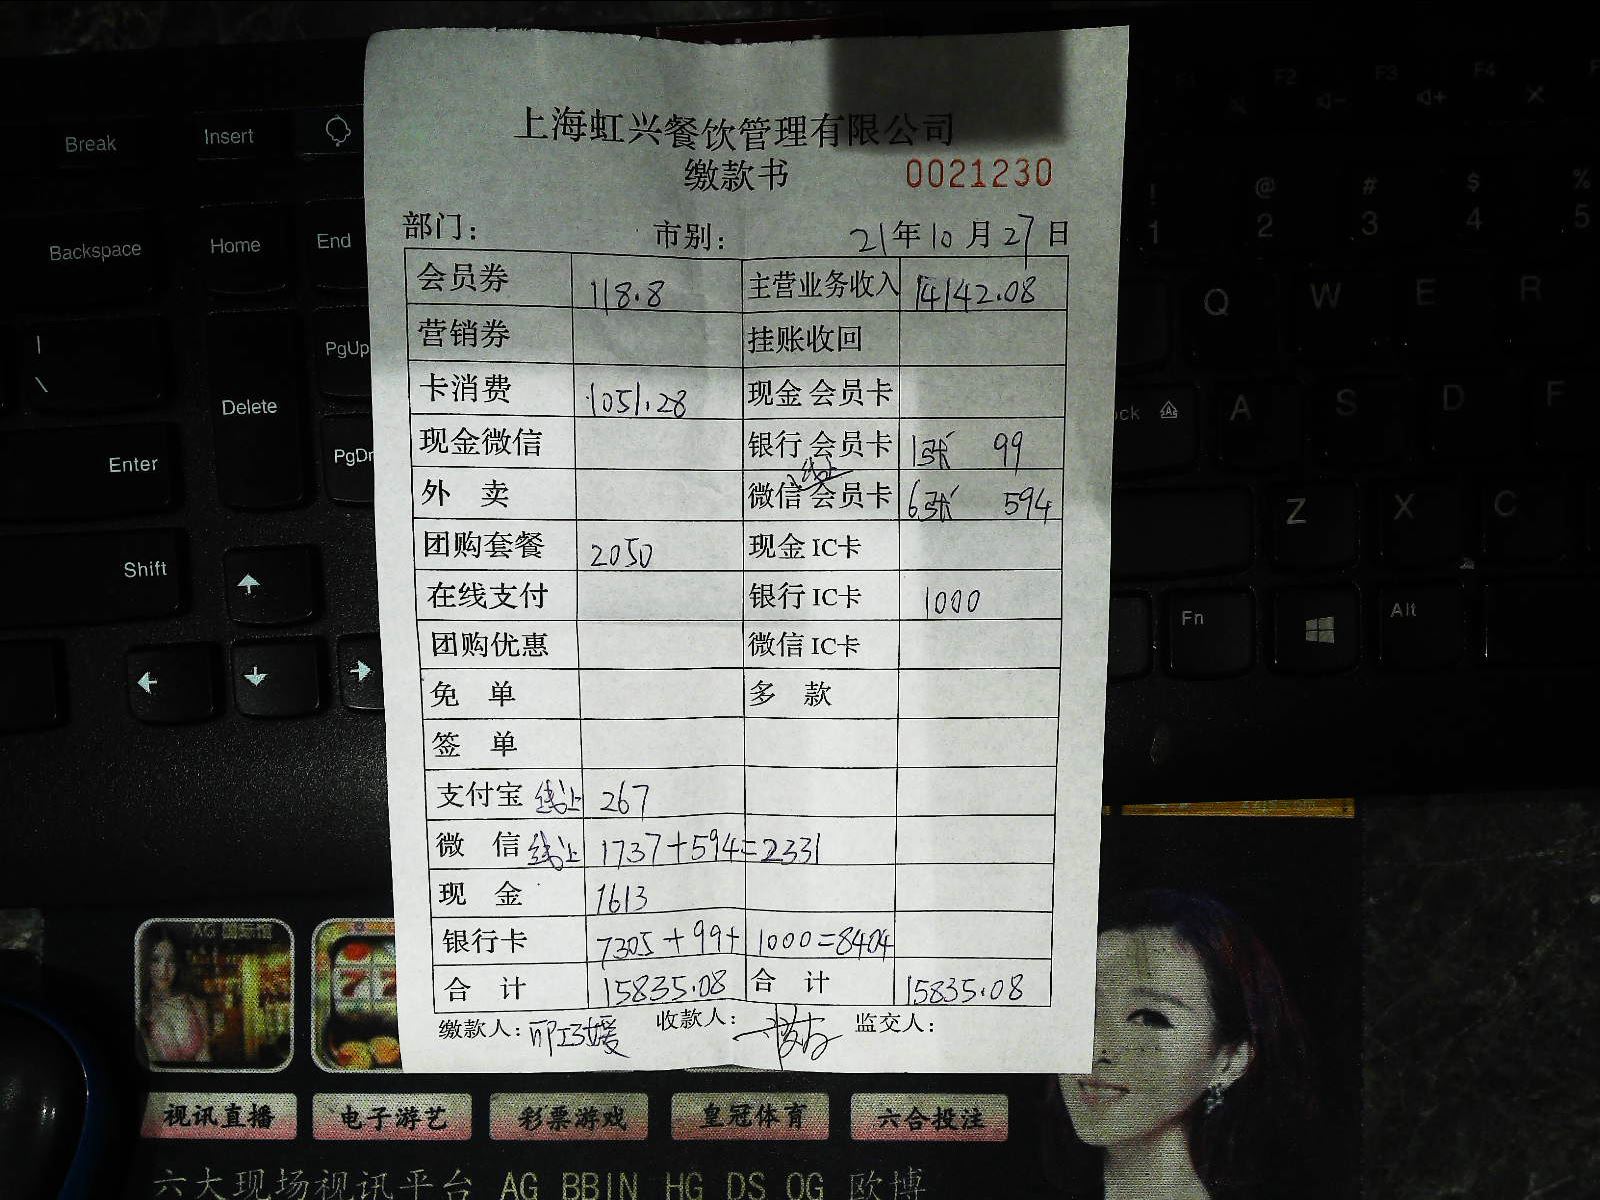 上海虹兴餐饮管理有限公司
缴款书 0021230
部门: 市别: 21年10月27日
会员券 118.8 主营业务收入 14142.08
营销券 挂账收回
卡消费 1051.28 现金会员卡
现金微信 银行会员卡 1张 99
线上
外卖 微信会员卡 6张 594
团购套餐 2050 现金IC卡
在线支付 银行IC卡 1000
团购优惠 微信IC卡
免单 多款
签单
支付宝 线上 267
微信 线上 1737+594=2331
现金 1613
银行卡 7305+99+1000=8404
合计 15835.08 合计 15835.08
缴款人: 收款人: 监交人:
Break Insert
Backspace Home End
| \ Delete PgUp
Enter PgDn
Shift
F2 F3 F4
! 1 @ 2 # 3 $ 4 % 5
Q W E R
A S D F
Z X C
Fn Alt
视讯直播 电子游艺 彩票游戏 皇冠体育 六合投注
六大现场视讯平台 AG BBIN HG DS OG 欧博